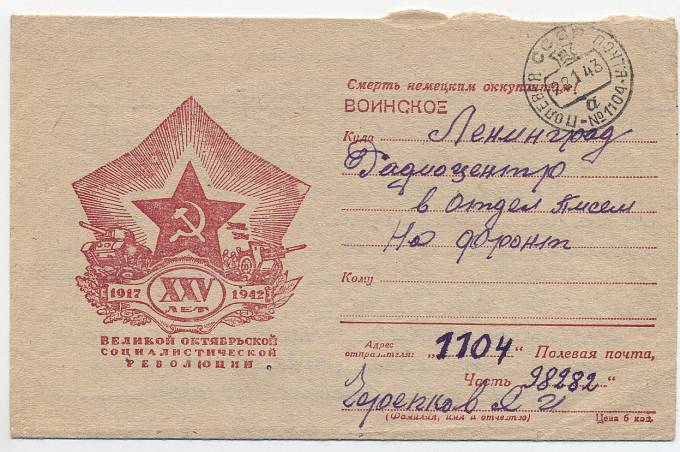 СССР ПОЛЕВАЯ ПОЧТА №1104
22 1 43
а
Смерть немецким оккупантам!
ВОИНСКОЕ
Куда Ленинград
Радиоцентр
в отдел писем
На фронт
Кому
1917 XXV 1942
ЛЕТ
ВЕЛИКОЙ ОКТЯБРЬСКОЙ
СОЦИАЛИСТИЧЕСКОЙ
РЕВОЛЮЦИИ
Адрес отправителя: „1104" Полевая почта,
Часть 28282"
Я И
(Фамилия, имя и отчество)
Цена 6 коп.